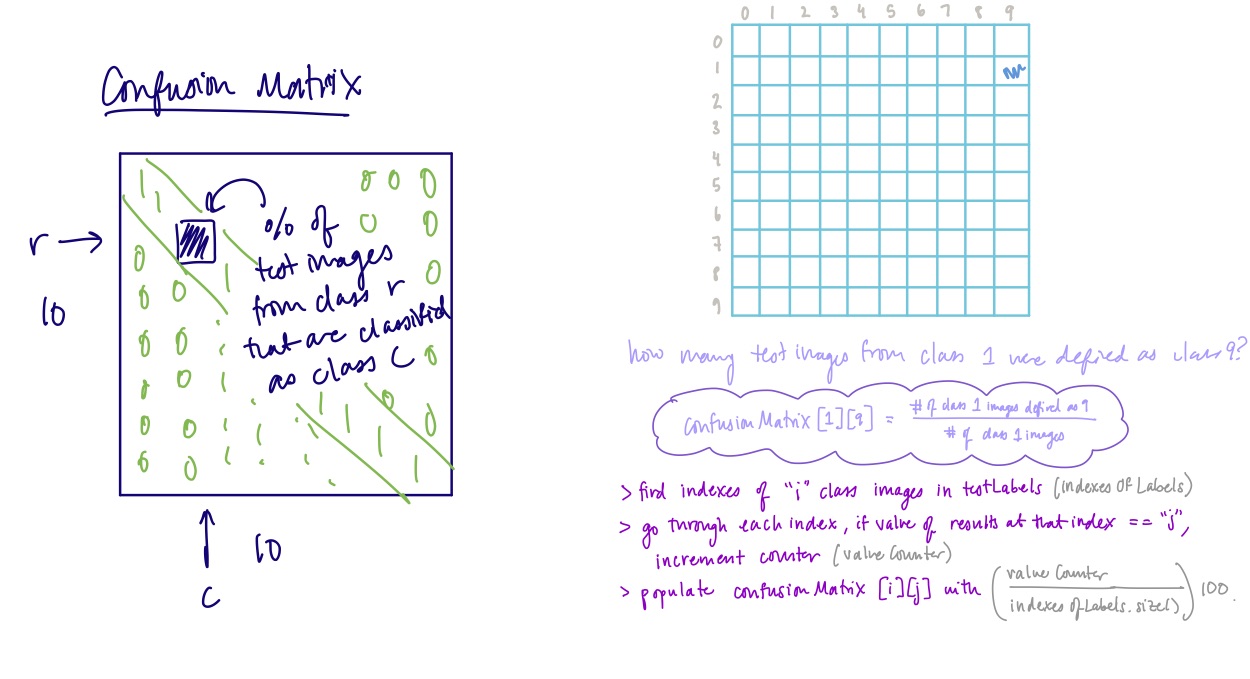 Confusion Matrix
r →
10
% of
test images
from class r
that are classified
as class C
1 1 0 0 0
0 0
0 1 0
0 0
0 0 0
0 1 0
0 0 1 1 0
0 0 1
10
C
0 1 2 3 4 5 6 7 8 9
0
1
2
3
4
5
6
7
8
9
how many test images from class 1 were defined as class 9?
Confusion Matrix [1][9] = # of class 1 images defined as 9
# of class 1 images
> find indexes of "i" class images in testLabels (indexes Of Labels)
> go through each index, if value of results at that index == "j",
increment counter (value Counter)
> populate confusion Matrix [i][j] with (value Counter / indexes of Labels.size()) 100.